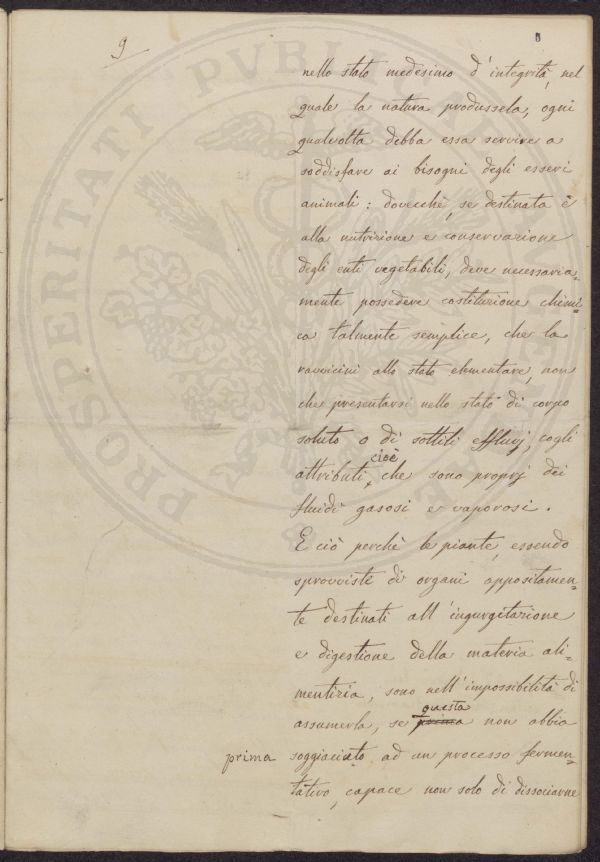 9
nello stato medesimo d'integrità, nel
quale la natura produssela, ogni
qualvolta debba essa servire a
soddisfare ai bisogni degli esseri
animali: dovecchè, se destinata è
alla nutrizione e conservazione
degli enti vegetabili, deve necessaria-
mente possedere costituzione chimi-
ca talmente semplice, che la
ravvicini allo stato elementare, non
che presentarsi nello stato di corpo
soluto o di sottili effluvj, cogli
cioè
attributi, che sono proprj dei
fluidi gasosi e vaporosi.
E ciò perchè le piante, essendo
sprovviste di organi appositamen-
te destinati all'ingurgitazione
e digestione della materia ali-
mentizia, sono nell'impossibilità di
questa
assumerla, se prima non abbia
prima soggiaciato ad un processo fermen-
tativo, capace non solo di dissociarne
PROSPERITATI PVBLICAE